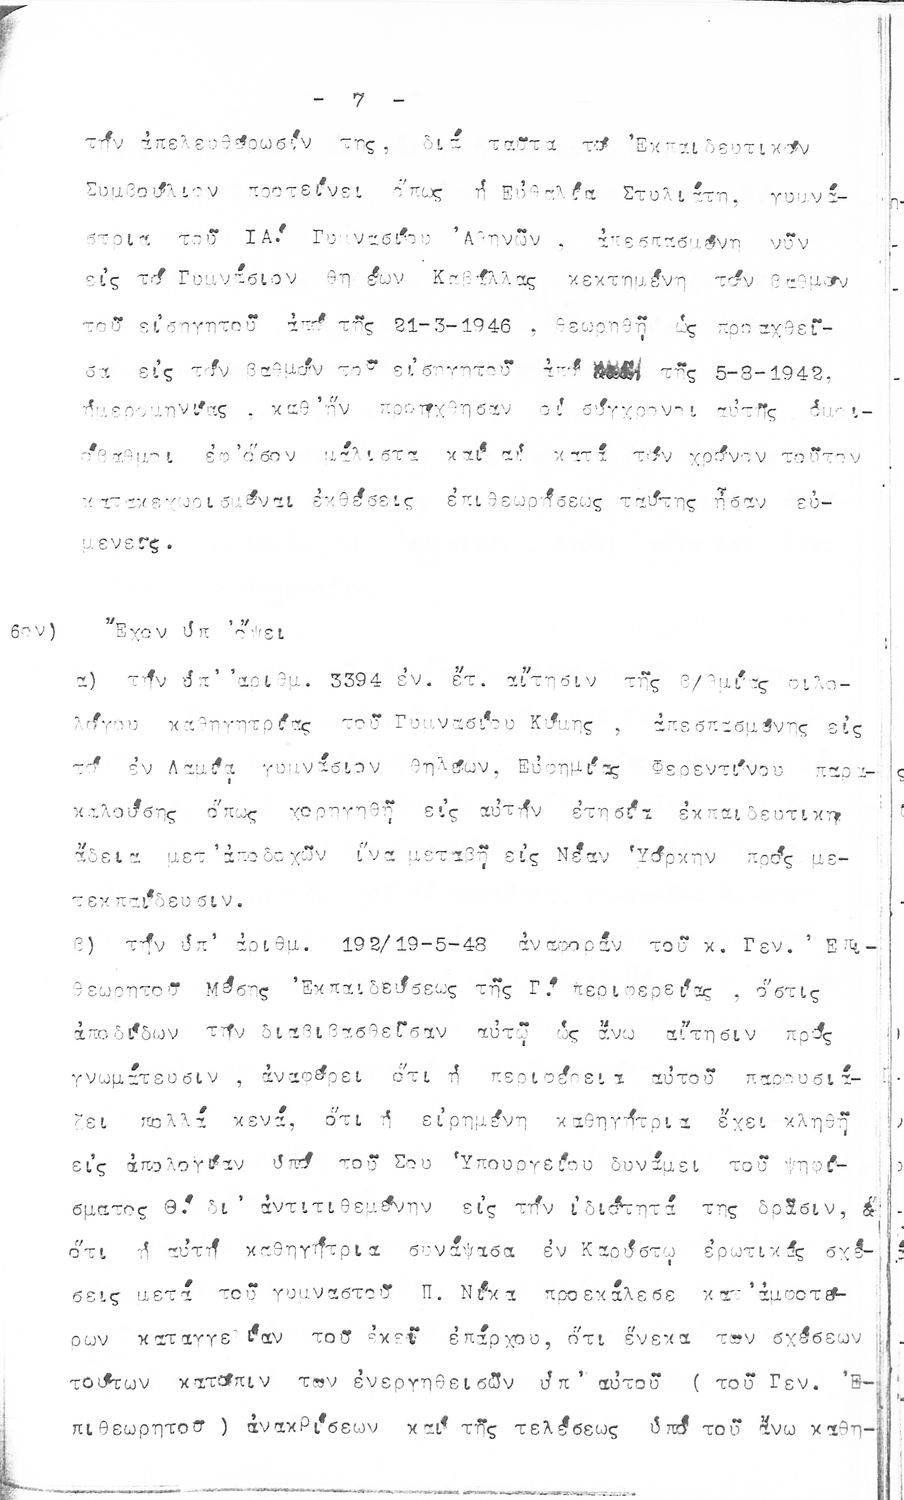 - 7 -
τήν ἀπελευθέρωσίν της, διά ταῦτα τό Ἐκπαιδευτικόν
Συμβούλιον προτείνει ὅπως ἡ Εὐθαλία Στυλιάτη, γυμνά-
στρια τοῦ ΙΑ΄ Γυμνασίου Ἀθηνῶν , ἀπεσπασμένη νῦν
εἰς τό Γυμνάσιον θηλέων Καβάλλας κεκτημένη τόν βαθμόν
τοῦ εἰσηγητοῦ ἀπό τῆς 21-3-1946 , θεωρηθῇ ὡς προαχθεῖ-
σα εἰς τόν βαθμόν τοῦ εἰσηγητοῦ ἀπό τῆς 5-8-1942,
ἡμερομηνίας , καθ'ἥν προήχθησαν οἱ σύγχρονοι αὐτῆς ὁμοι-
όβαθμοι ἐφ'ὅσον μάλιστα καί αἱ κατά τόν χρόνον τοῦτον
κατακεχωρισμέναι ἐκθέσεις ἐπιθεωρήσεως ταύτης ἦσαν εὐ-
μενεῖς.
6ον) Ἔχον ὑπ 'ὄψει
α) τήν ὑπ' 'αριθμ. 3394 ἐν. ἔτ. αἴτησιν τῆς β/θμίας φιλο-
λόγου καθηγητρίας τοῦ Γυμνασίου Κύμης , ἀπεσπασμένης εἰς
τό ἐν Λαμίᾳ γυμνάσιον θηλέων, Εὐφημίας Φερεντίνου παρα-
καλούσης ὅπως χορηγηθῇ εἰς αὐτήν ἐτησία ἐκπαιδευτική
ἄδεια μετ'ἀποδοχῶν ἵνα μεταβῇ εἰς Νέαν Ὑόρκην πρός με-
τεκπαίδευσιν.
β) τήν ὑπ' ἀριθμ. 192/19-5-48 ἀναφοράν τοῦ κ. Γεν. 'Επι-
θεωρητοῦ Μέσης Ἐκπαιδεύσεως τῆς Γ΄ περιφερείας , ὅστις
ἀποδίδων τήν διαβιβασθεῖσαν αὐτῷ ὡς ἄνω αἴτησιν πρός
γνωμάτευσιν , ἀναφέρει ὅτι ἡ περιφέρεια αὐτοῦ παρουσιά-
ζει πολλά κενά, ὅτι ἡ εἰρημένη καθηγήτρια ἔχει κληθῆ
εἰς ἀπολογίαν ὑπό τοῦ Σου Ὑπουργείου δυνάμει τοῦ ψηφί-
σματος Θ΄ δι' ἀντιτιθεμένην εἰς τήν ἰδιότητά της δρᾶσιν,
ὅτι ἡ αὐτή καθηγήτρια συνάψασα ἐν Καρύστῳ ἐρωτικάς σχέ-
σεις μετά τοῦ γυμναστοῦ Π. Νίκα προεκάλεσε κατ'ἀμφοτέ-
ρων καταγγελίαν τοῦ ἐκεῖ ἐπάρχου, ὅτι ἕνεκα τῶν σχέσεων
τούτων κατόπιν τῶν ἐνεργηθεισῶν ὑπ' αὐτοῦ ( τοῦ Γεν. 'Ε-
πιθεωρητοῦ ) ἀνακρίσεων καί τῆς τελέσεως ὑπό τοῦ ἄνω καθη-